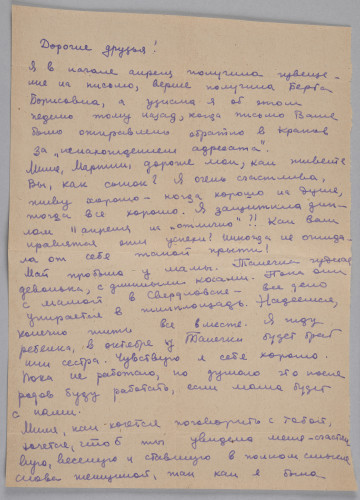 Дорогие друзья!
Я в начале апреля получила извеще-
ние на письмо, вернее получила Берта
Борисовна, а узнала я об этом
неделю тому назад, когда письмо Ваше
было отправлено обратно в Краков
за "ненахождением адресата".
Миля, Мартин, дорогие мои, как живёте
Вы, как сынок? Я очень счастлива,
живу хорошо - когда хорошо на душе,
тогда все хорошо. Я защитила дип-
лом "<on> и на "отлично"!! Как вам
нравятся они успехи? Никогда не ожида-
ла от себя такой прыти!
Май пробыла у мамы. Талечка чудная
девочка, с длинными косами. Пока они
с мамой в Свердловске - все дело
упирается в жилплощадь. Надеемся,
конечно жить все вместе. Я жду
ребенка, в октябре у Талечки будет брат
или сестра. Чувствую я себя хорошо.
Пока не работаю, но думаю что после
родов буду работать, если мама будет
с нами.
Миля, как хочется поговорить с тобой,
хочется, чтоб ты увидела меня счастли-
вую, веселую и ставшую в полном смысле
слова женщиной, так как я была